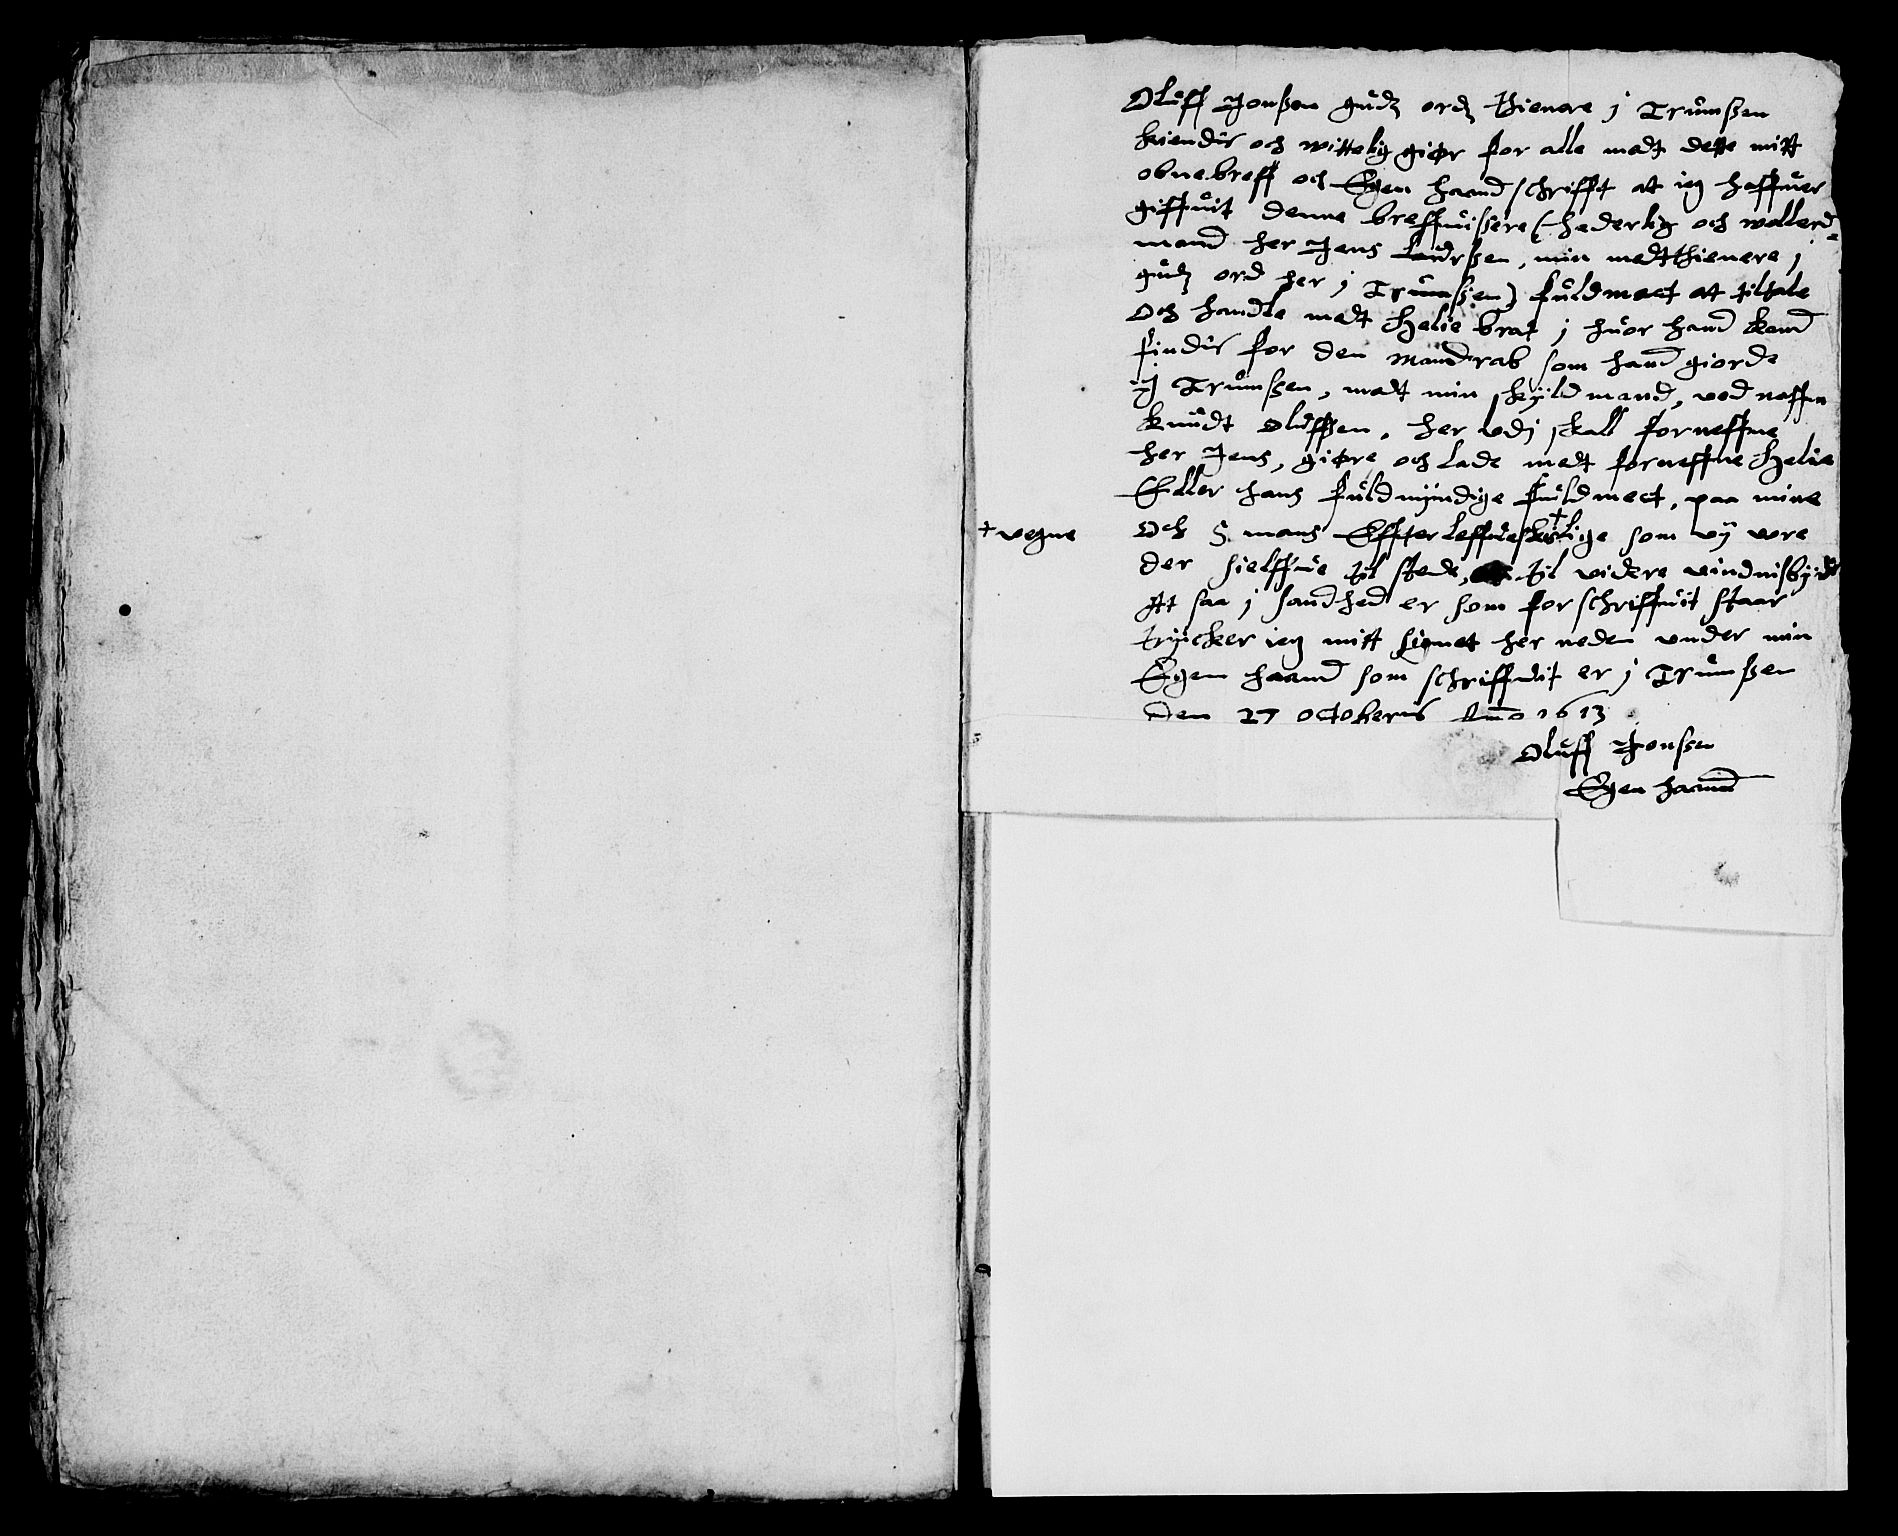 Oluff Jonßen gudz ordz thienere j Trumßen
kiendis och witterlig giør for alle medt dette mitt
obne breff och Egen haand schrifft at ieg haffuer
giffuit denne breffuißere (hederlig och wellerd
mand her Jens Laurßen, min medthienere j
gudz ord her j Trumßen) fuldmact at tiltale
Och handle medt Helie brat j huor hand kand
findis for den mandrab som hand giorde
ij Trumßen, medt min skyldmand, ved naffn
knudt Olufßen, her vdj skall forneffne
her Jens, giøre och lade medt forneffne Helie
Eller hans fuldmyndige fuldmect, paa mine
+ vegne
Och S. mans Effterleffuerskis + lige som vij vore
der sielffue til stede, til videre vindnisbyrd
At saa j sandhed er som forschriffuit staar
trycker ieg mitt signet her neden vnder min
Egen haand som schriffuit er j Trumßen
den 27 octoberis Anno 1613
Oluff Jonßen
Egen haand